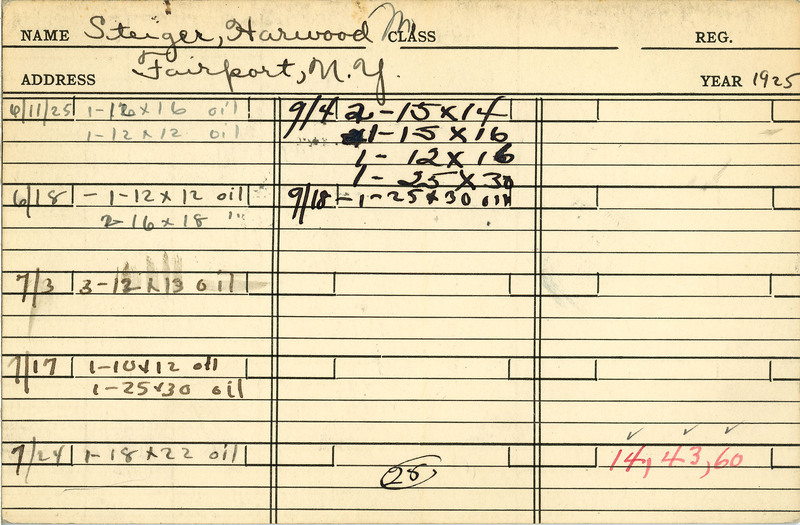 NAME Steiger, Harwood M. CLASS REG.
ADDRESS Fairport, N.Y. YEAR 1925
6/11/25 1-12x16 oil
1-12x12 oil
6/18 - 1-12x12 oil
2-16x18 "
7/3 3-12x13 oil
7/17 1-10x12 oil
1-25x30 oil
7/24 1-18x22 oil
9/4 2-15x14
1-15x16
1-12x16
1-25x30
9/18 - 1-25x30 oil
28
14, 43, 60